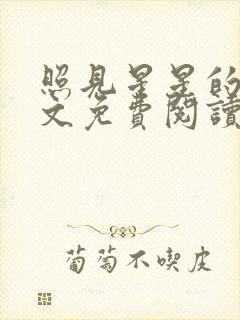 照見星星的
文免費閱讀
葡萄不喫皮